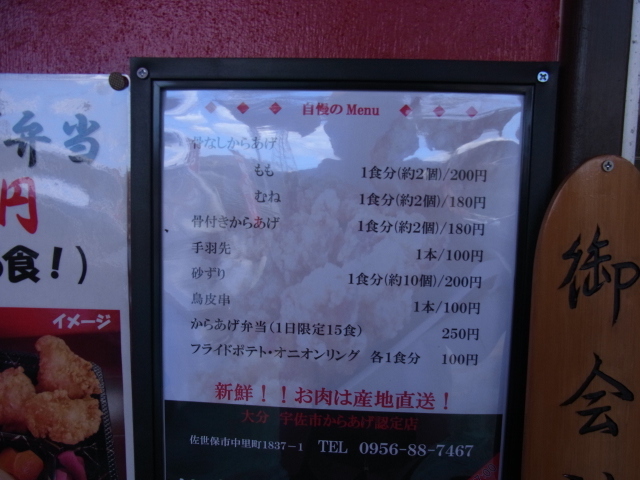 弁当
円
食！)
イメージ
自慢の Menu
骨なしからあげ
もも 1食分(約2個)/200円
むね 1食分(約2個)/180円
骨付きからあげ 1食分(約2個)/180円
手羽先 1本/100円
砂ずり 1食分(約10個)/200円
鳥皮串 1本/100円
からあげ弁当(1日限定15食) 250円
フライドポテト・オニオンリング 各1食分 100円
新鮮！！お肉は産地直送！
大分 宇佐市からあげ認定店
佐世保市中里町1837-1 TEL 0956-88-7467
御会